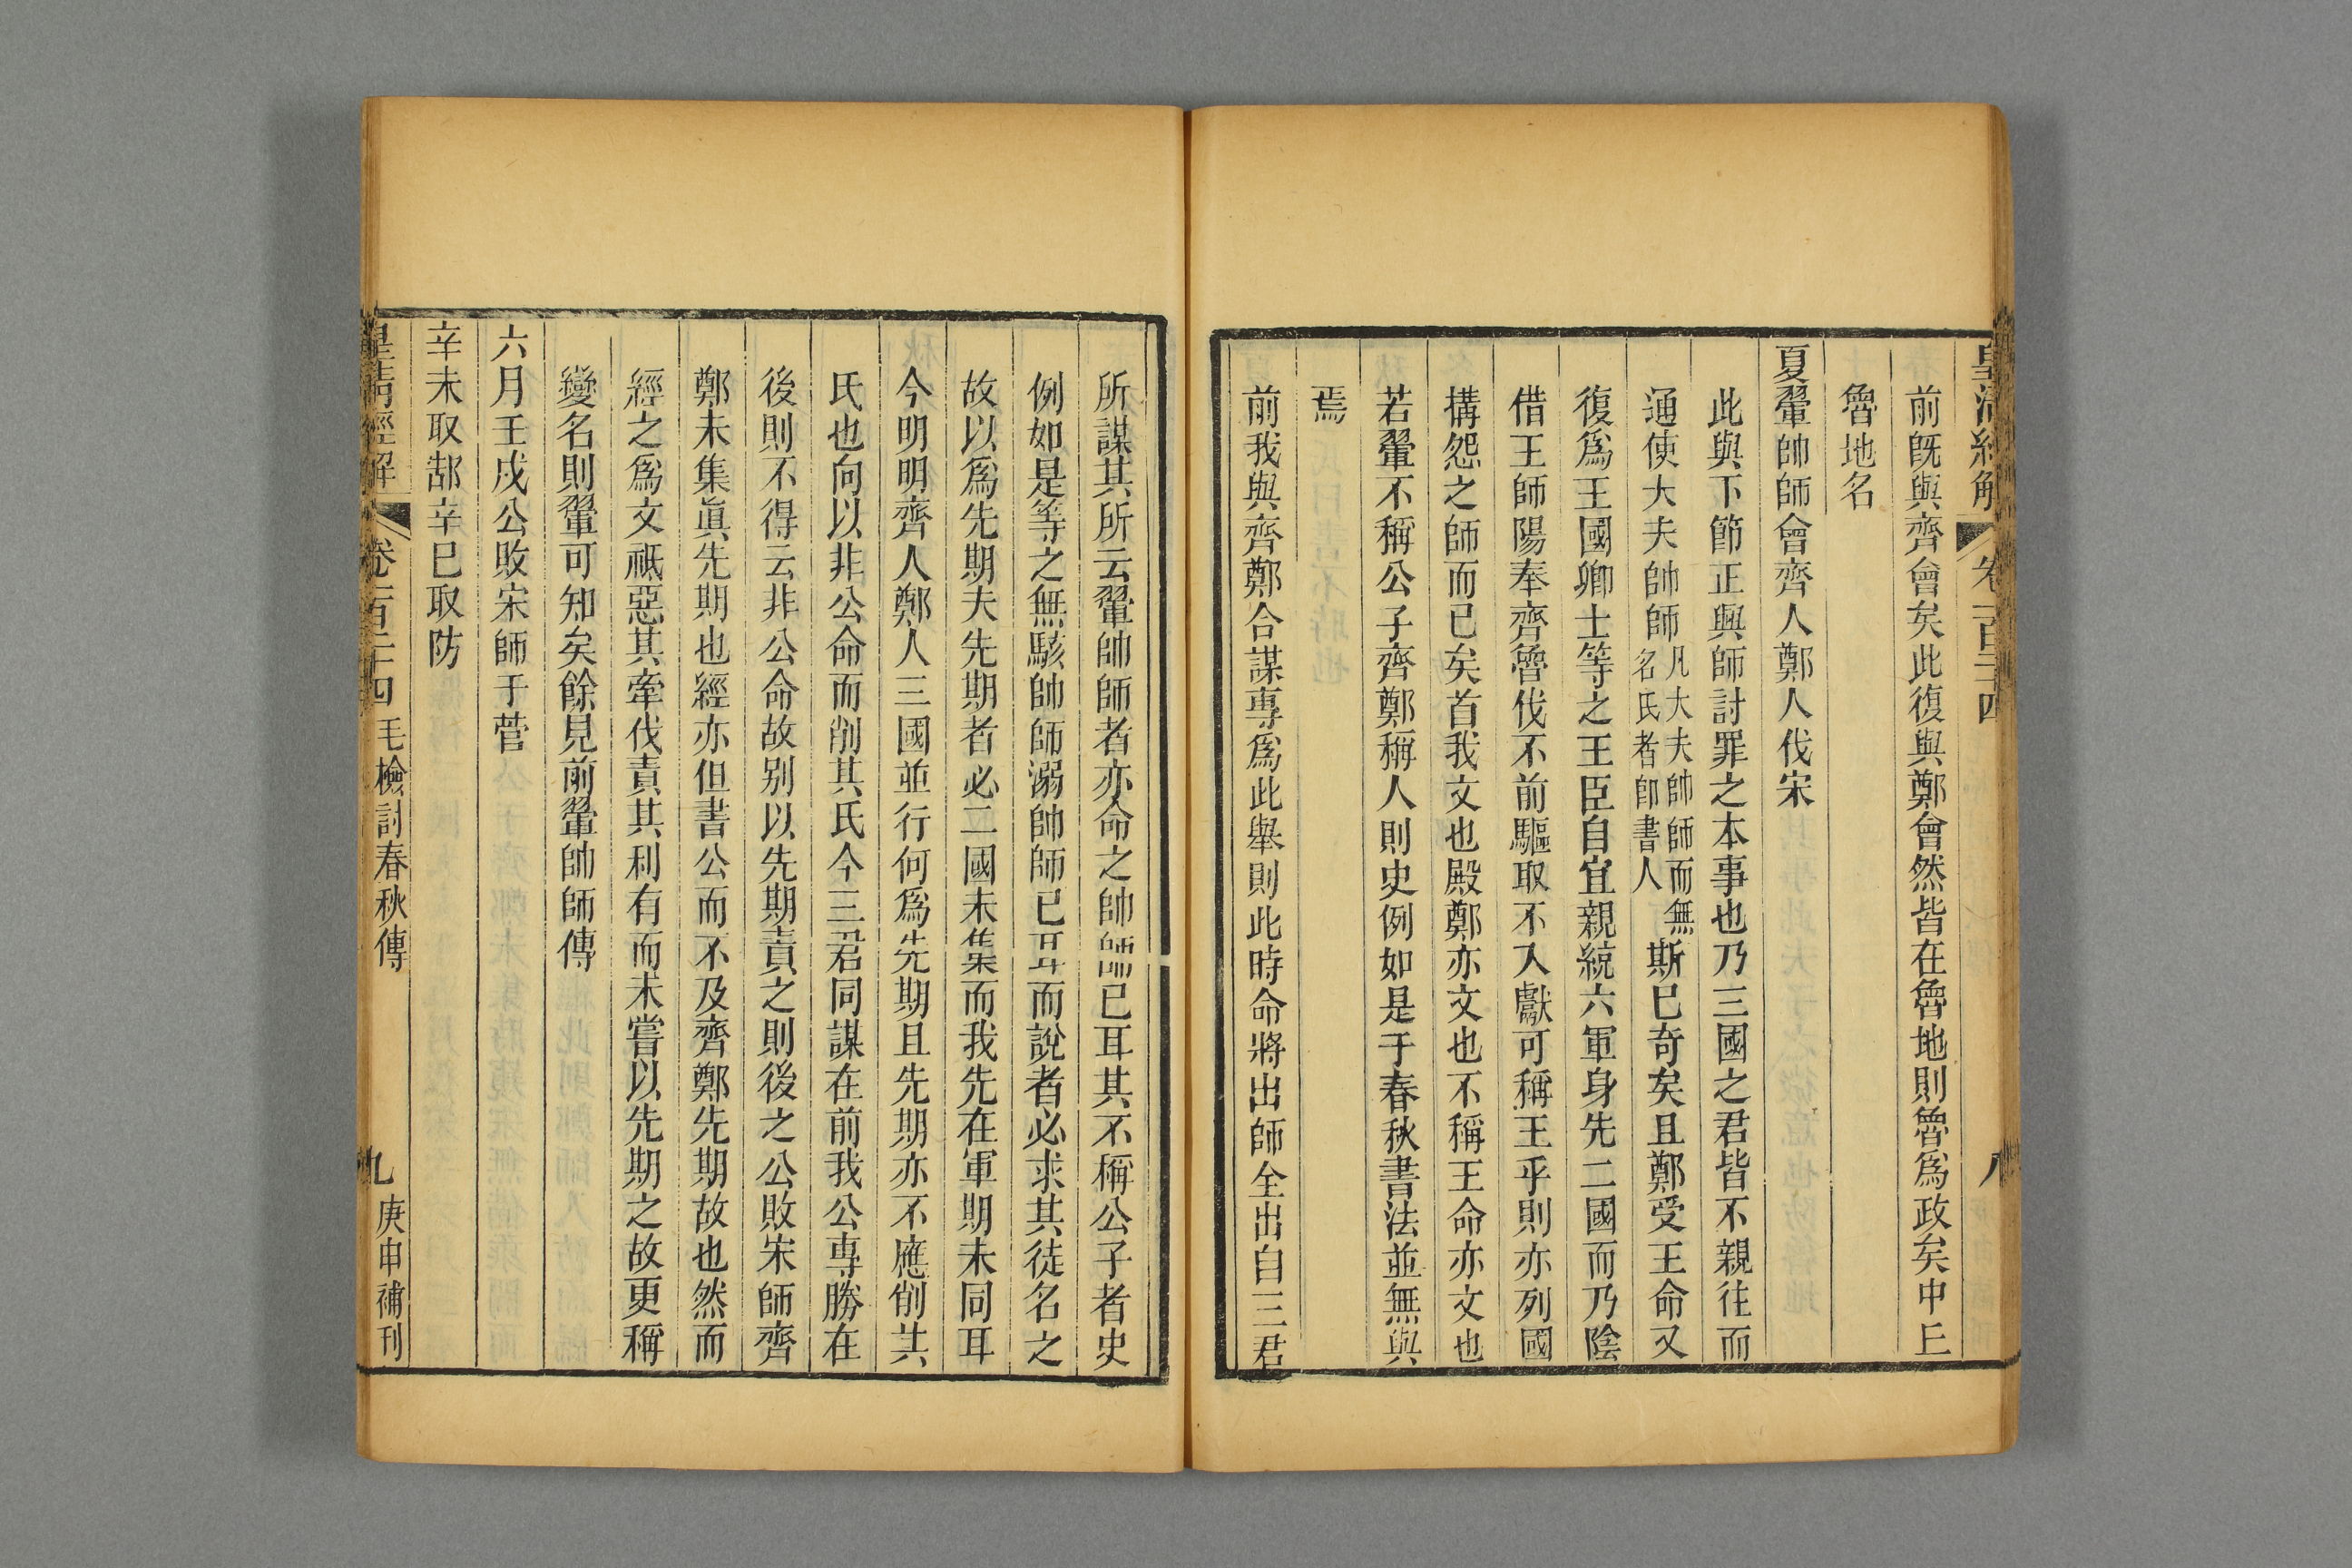 皇清經解 卷一百二十四 八
前旣與齊會矣此復與鄭會然皆在魯地則魯爲政矣中丘
魯地名
夏翬帥師會齊人鄭人伐宋
此與下節正興師討罪之本事也乃三國之君皆不親往而
通使大夫帥師凡大夫帥師而無名氏者卽書人斯已奇矣且鄭受王命又
復爲王國卿士等之王臣自宜親統六軍身先二國而乃陰
借王師陽奉齊魯伐不前驅取不入獻可稱王乎則亦列國
搆怨之師而已矣首我文也殿鄭亦文也不稱王命亦文也
若翬不稱公子齊鄭稱人則史例如是于春秋書法並無與
焉
前我與齊鄭合謀專爲此舉則此時命將出師全出自三君
所謀其所云翬帥師者亦命之帥師已耳其不稱公子者史
例如是等之無駭帥師溺帥師已耳而說者必求其徒名之
故以爲先期夫先期者必二國未集而我先在軍期未同耳
今明明齊人鄭人三國並行何爲先期且先期亦不應削其
氏也向以非公命而削其氏今三君同謀在前我公專勝在
後則不得云非公命故别以先期責之則後之公敗宋師齊
鄭未集眞先期也經亦但書公而不及齊鄭先期故也然而
經之爲文祇惡其牽伐責其利有而未嘗以先期之故更稱
變名則翬可知矣餘見前翬帥師傳
六月壬戌公敗宋師于菅
辛未取郜辛巳取防
皇清經解 卷一百二十四 毛檢討春秋傳 九 庚申補刊